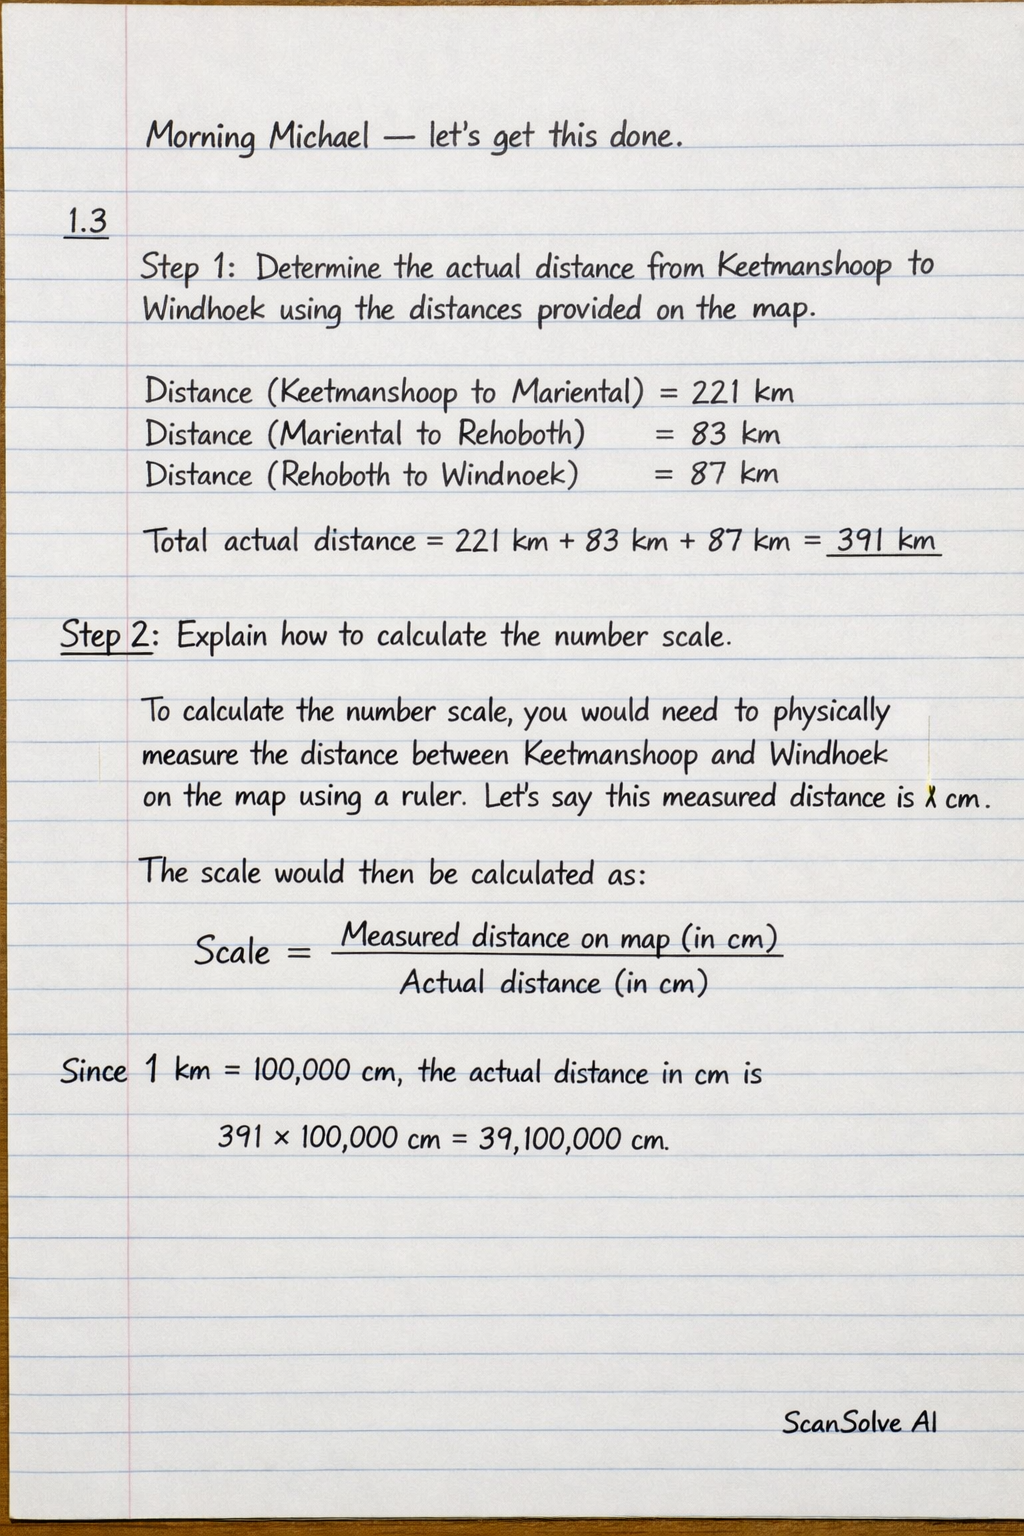 Morning Michael — let's get this done.
1.3
Step 1: Determine the actual distance from Keetmanshoop to
Windhoek using the distances provided on the map.
Distance (Keetmanshoop to Mariental) = 221 km
Distance (Mariental to Rehoboth) = 83 km
Distance (Rehoboth to Windnoek) = 87 km
Total actual distance = 221 km + 83 km + 87 km = 391 km
Step 2: Explain how to calculate the number scale.
To calculate the number scale, you would need to physically
measure the distance between Keetmanshoop and Windhoek
on the map using a ruler. Let's say this measured distance is x cm.
The scale would then be calculated as:
Scale = Measured distance on map (in cm)
Actual distance (in cm)
Since 1 km = 100,000 cm, the actual distance in cm is
391 × 100,000 cm = 39,100,000 cm.
ScanSolve AI